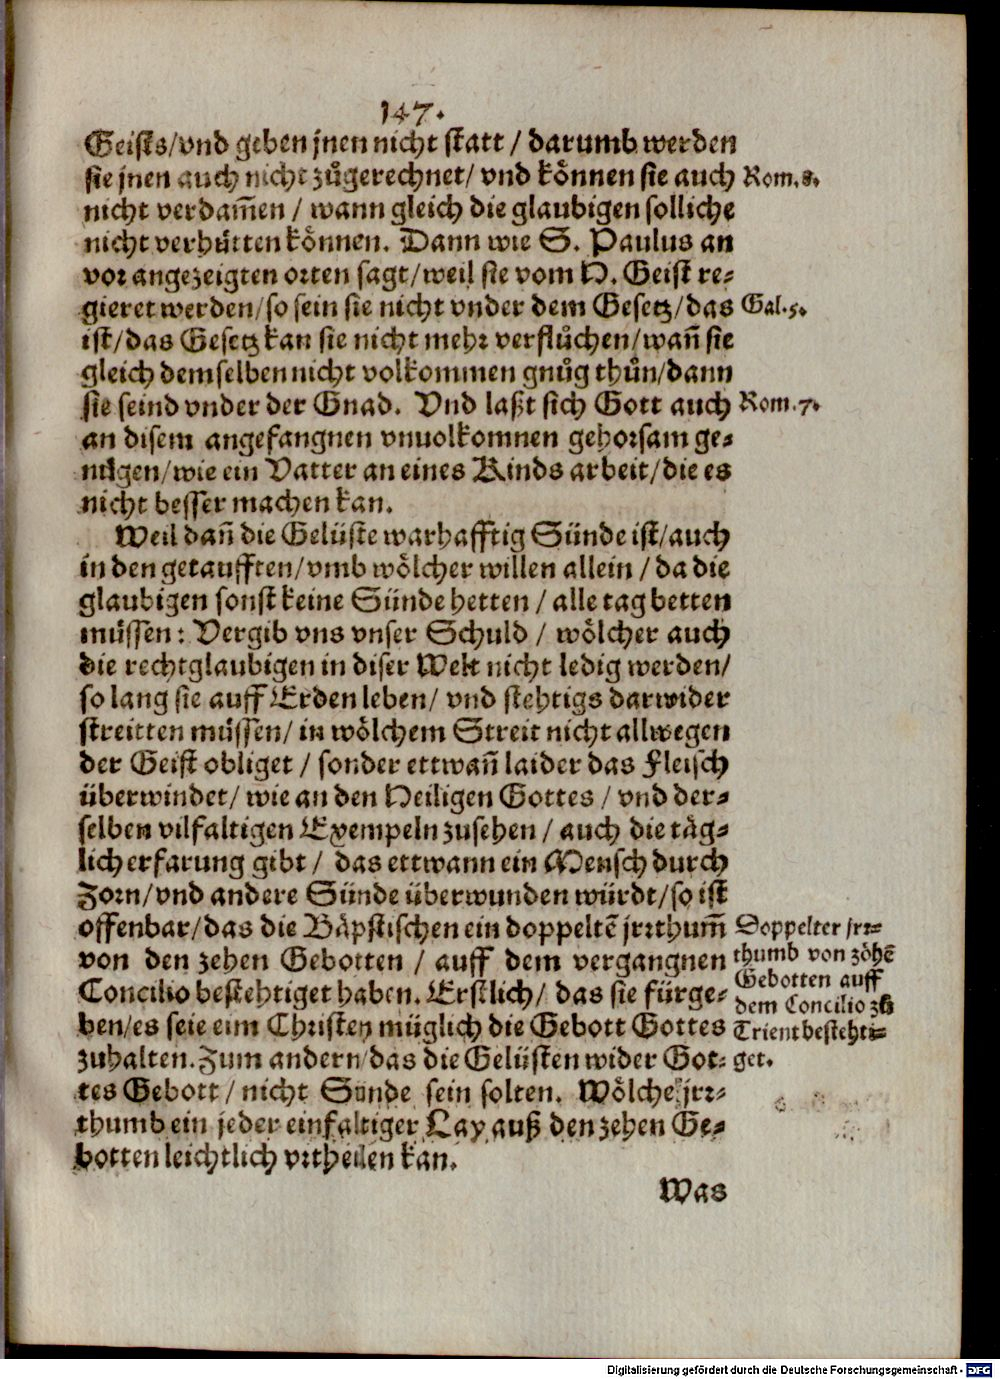 147.
Geists/vnd geben jnen nicht statt / darumb werden
sie jnen auch nicht zůgerechnet/ vnd können sie auch Rom.8.
nicht verdam̃en / wann gleich die glaubigen solliche
nicht verhütten können. Dann wie S. Paulus an
vor angezeigten orten sagt/weil sie vom H. Geist re-
gieret werden/so sein sie nicht vnder dem Gesetz/das Gal.5.
ist/das Gesetz kan sie nicht mehr verflůchen/wañ sie
gleich demselben nicht volkommen gnůg thůn/dann
sie seind vnder der Gnad. Vnd laßt sich Gott auch Rom.7.
an disem angefangnen vnuolkomnen gehorsam ge-
nügen/wie ein Vatter an eines Kinds arbeit/die es
nicht besser machen kan.
Weil dañ die Gelüste warhafftig Sünde ist/auch
in den getaufften/vmb wölcher willen allein / da die
glaubigen sonst keine Sünde hetten / alle tag betten
müssen: Vergib vns vnser Schuld / wölcher auch
die rechtglaubigen in diser Welt nicht ledig werden/
so lang sie auff Erden leben/ vnd stehtigs darwider
streitten müssen/ in wölchem Streit nicht allwegen
der Geist obliget / sonder ettwañ laider das Fleisch
überwindet/ wie an den Heiligen Gottes / vnd der-
selben vilfaltigen Exempeln zusehen / auch die täg-
lich erfarung gibt / das ettwann ein Mensch durch
Zorn/vnd andere Sünde überwunden würdt/so ist
offenbar/das die Bäpstischen ein doppeltẽ jrrthum̃
von den zehen Gebotten / auff dem vergangnen
Concilio bestehtiget haben. Erstlich/ das sie fürge-
ben/es seie eim Christen müglich die Gebott Gottes
zuhalten. Zum andern/das die Gelüsten wider Got-
tes Gebott / nicht Sünde sein solten. Wölche jrr-
thumb ein jeder einfaltiger Lay auß den zehen Ge-
botten leichtlich vrtheilen kan.
Doppelter jrr-
thumb von zöhẽ
Gebotten auff
dem Concilio zů
Trient bestehti-
get.
Was
Digitalisierung gefördert durch die Deutsche Forschungsgemeinschaft - DFG